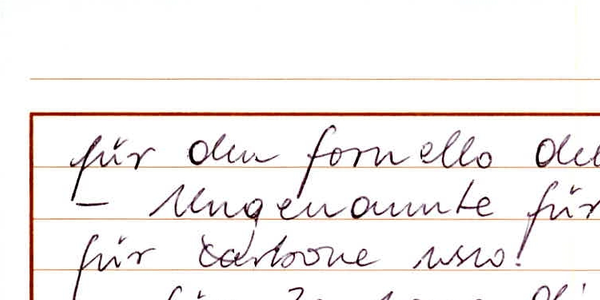 für den fornello
– Ungenannte für
für carbone usw.
für